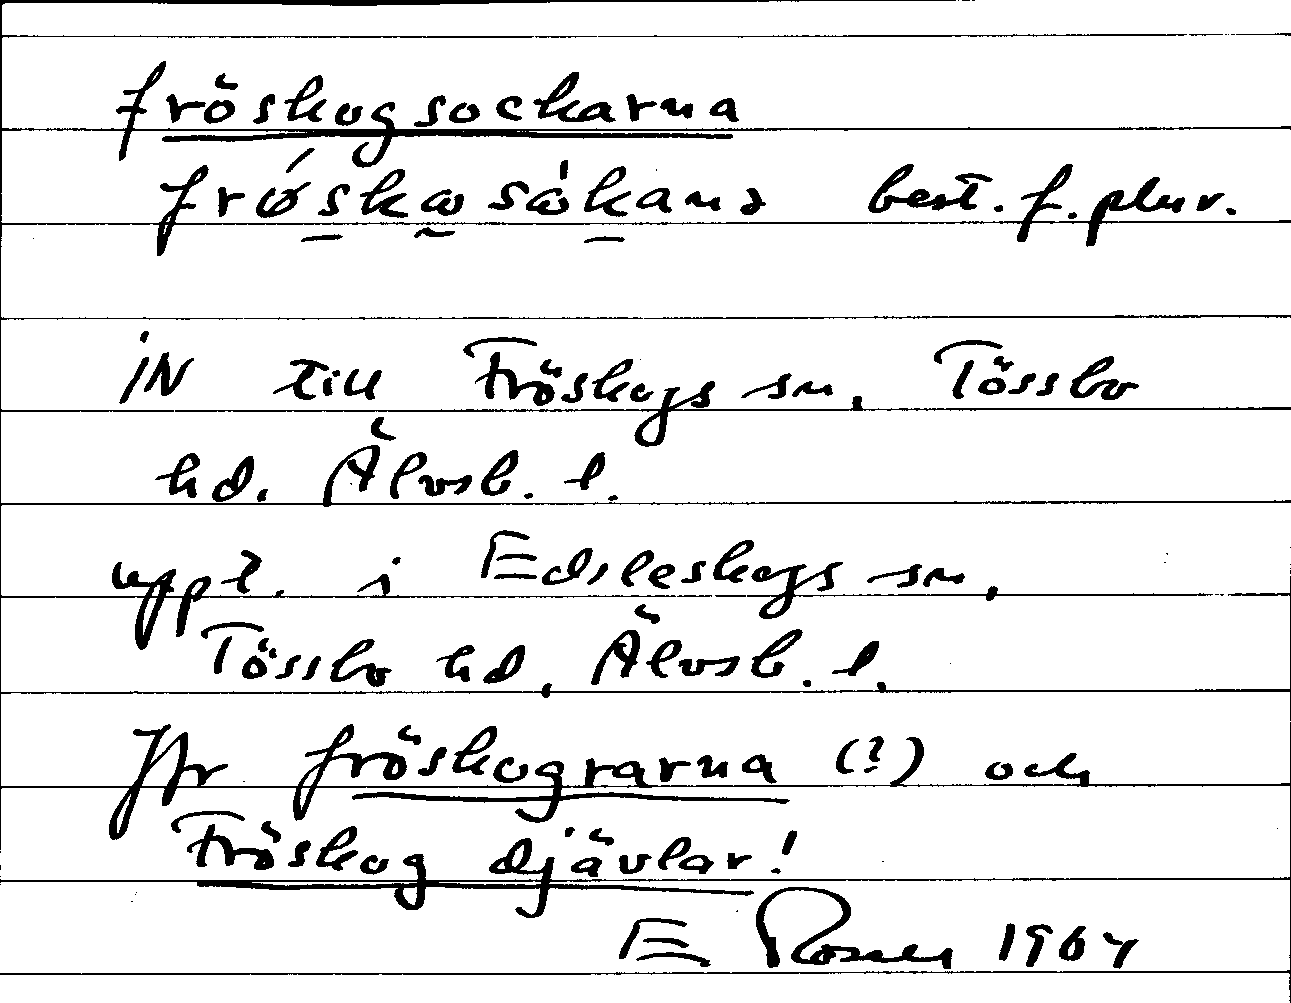 fröskogsockarna
frǿskɷsɷ̀kanə best. f. plur.
IN till Fröskogs sn, Tössbo
hd. Älvsb. l.
uppt. i Edsleskogs sn,
Tössbo hd, Älvsb. l.
Jfr fröskograrna (?) och
Fröskog djävlar!
E Rosen 1967